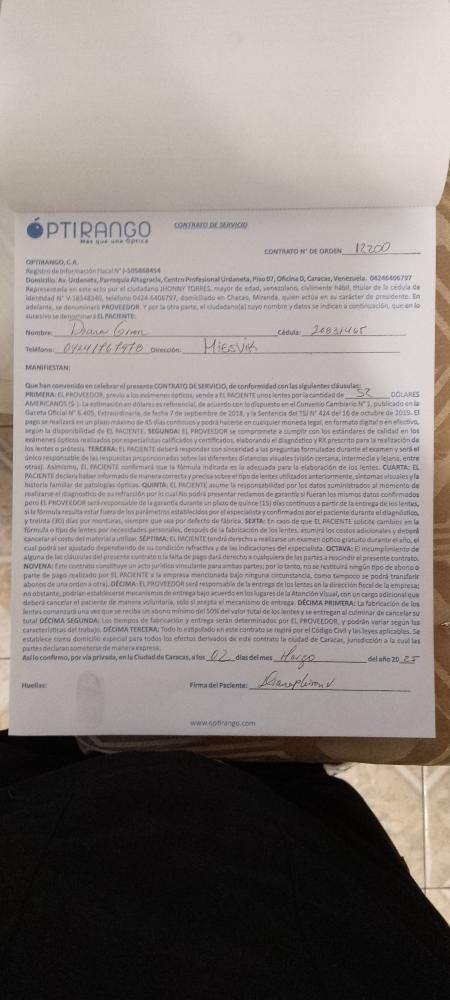 OPTIRANGO
Más que una Óptica
CONTRATO DE SERVICIO
CONTRATO N° DE ORDEN 12200
OPTIRANGO, C.A.
Registro de Información Fiscal N° J-505868454
Domicilio: Av. Urdaneta, Parroquia Altagracia, Centro Profesional Urdaneta, Piso 07, Oficina D, Caracas, Venezuela. 04246406797
Representada en este acto por el ciudadano JHONNY TORRES, mayor de edad, venezolano, civilmente hábil, titular de la cédula de
identidad N° V-18348340, teléfono 0424-6406797, domiciliado en Chacao, Miranda, quien actúa en su carácter de presidente. En
adelante, se denominará PROVEEDOR. Y por la otra parte, el ciudadano(a) cuyo nombre y datos se indican a continuación, que en lo
sucesivo se denominará EL PACIENTE:
Nombre: Diana Cédula: 20831465
Teléfono: Dirección:
MANIFIESTAN:
Que han convenido en celebrar el presente CONTRATO DE SERVICIO, de conformidad con las siguientes cláusulas:
PRIMERA: EL PROVEEDOR, previo a los exámenes ópticos, vende a EL PACIENTE unos lentes por la cantidad de 52 DÓLARES
AMERICANOS ($-). La estimación en dólares es referencial, de acuerdo con lo dispuesto en el Convenio Cambiario N° 1, publicado en
Gaceta Oficial N° 6.405, Extraordinaria, de fecha 7 de septiembre de 2018, y la Sentencia del TSJ N° 424 del 16 de octubre de 2019. El
pago se realizará en un plazo máximo de 45 días continuos y podrá hacerse en cualquier moneda legal, en formato digital o en efectivo,
según la disponibilidad de EL PACIENTE. SEGUNDA: EL PROVEEDOR se compromete a cumplir con los estándares de calidad en los
exámenes ópticos realizados por especialistas calificados y certificados, elaborando el diagnóstico y RX prescrito para la realización de
los lentes o prótesis. TERCERA: EL PACIENTE deberá responder con sinceridad a las preguntas formuladas durante el examen y será el
único responsable de las respuestas proporcionadas sobre las diferentes distancias visuales (visión cercana, intermedia y lejana, entre
otras). Asimismo, EL PACIENTE confirmará que la fórmula indicada es la adecuada para la elaboración de los lentes. CUARTA: EL
PACIENTE declara haber informado de manera correcta y precisa sobre el tipo de lentes utilizados anteriormente, síntomas visuales y la
historia familiar de patologías ópticas. QUINTA: EL PACIENTE asume la responsabilidad por los datos suministrados al momento de
realizarse el diagnostico de su refracción por lo cual No podrá presentar reclamos de garantía si fueran los mismos datos confirmados
pero EL PROVEEDOR será responsable de la garantía durante un plazo de quince (15) días continuos a partir de la entrega de los lentes,
si la fórmula resulta estar fuera de los parámetros establecidos por el especialista y confirmados por el paciente durante el diagnóstico,
y treinta (30) días por monturas, siempre que sea por defecto de fábrica. SEXTA: En caso de que EL PACIENTE solicite cambios en la
fórmula o tipo de lentes por necesidades personales, después de la fabricación de los lentes, asumirá los costos adicionales y deberá
cancelar el costo del material a utilizar. SÉPTIMA: EL PACIENTE tendrá derecho a realizarse un examen óptico gratuito durante el año, el
cual podrá ser ajustado dependiendo de su condición refractiva y de las indicaciones del especialista. OCTAVA: El incumplimiento de
alguna de las cláusulas del presente contrato o la falta de pago dará derecho a cualquiera de las partes a rescindir el presente contrato.
NOVENA: Este contrato constituye un acto jurídico vinculante para ambas partes; por lo tanto, no se restituirá ningún tipo de abono o
parte de pago realizado por EL PACIENTE a la empresa mencionada bajo ninguna circunstancia, como tampoco se podrá transferir
abonos de una orden a otra). DÉCIMA: EL PROVEEDOR será responsable de la entrega de los lentes en la dirección fiscal de la empresa;
no obstante, podrían establecerse mecanismos de entrega bajo acuerdo en los lugares de la Atención Visual, con un cargo adicional que
deberá cancelar el paciente de manera voluntaria, solo si acepta el mecanismo de entrega. DÉCIMA PRIMERA: La fabricación de los
lentes comenzará una vez que se reciba un abono mínimo del 50% del valor total de los lentes y se entregan al culminar de cancelar su
total DÉCIMA SEGUNDA: Los tiempos de fabricación y entrega serán determinados por EL PROVEEDOR, y podrán variar según las
características del trabajo. DÉCIMA TERCERA: Todo lo estipulado en este contrato se regirá por el Código Civil y las leyes aplicables. Se
establece como domicilio especial para todos los efectos derivados de este contrato la ciudad de Caracas, jurisdicción a la cual las
partes declaran someterse de manera expresa.
Así lo confirmo, por vía privada, en la Ciudad de Caracas, a los 02 días del mes Marzo del año 20 25
Huellas: Firma del Paciente:
www.optirango.com